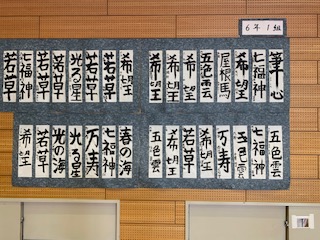 6年1組
筆心
七福神
希望
五色雲
希望
希望
希望
希望
若草
若草
光る星
若草
若草
七福神
若草
五色雲
七福神
五色雲
万寿
希望
若草
希望
五色雲
春の海
七福神
万寿
光る星
光の海
若草
希望